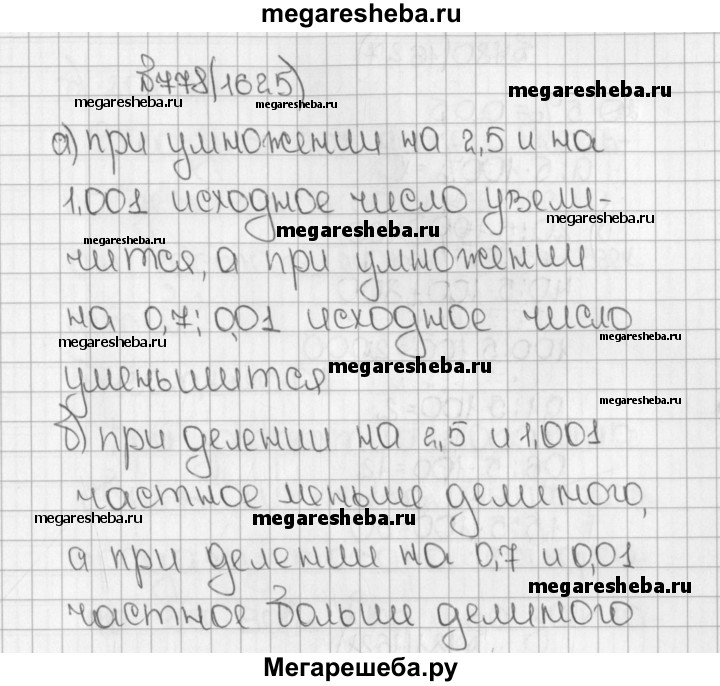 megaresheba.ru
№778(1625)
megaresheba.ru
megaresheba.ru
а) при умножении на 2,5 и на
1,001 исходное число увели-
megaresheba.ru
megaresheba.ru
megaresheba.ru
чится, а при умножении
на 0,7; 0,01 исходное число
megaresheba.ru
megaresheba.ru
уменьшится
megaresheba.ru
megaresheba.ru
б) при делении на 2,5 и 1,001
megaresheba.ru
частное меньше делимого,
megaresheba.ru
megaresheba.ru
а при делении на 0,7 и 0,01
megaresheba.ru
частное больше делимого
Мегарешеба.ру